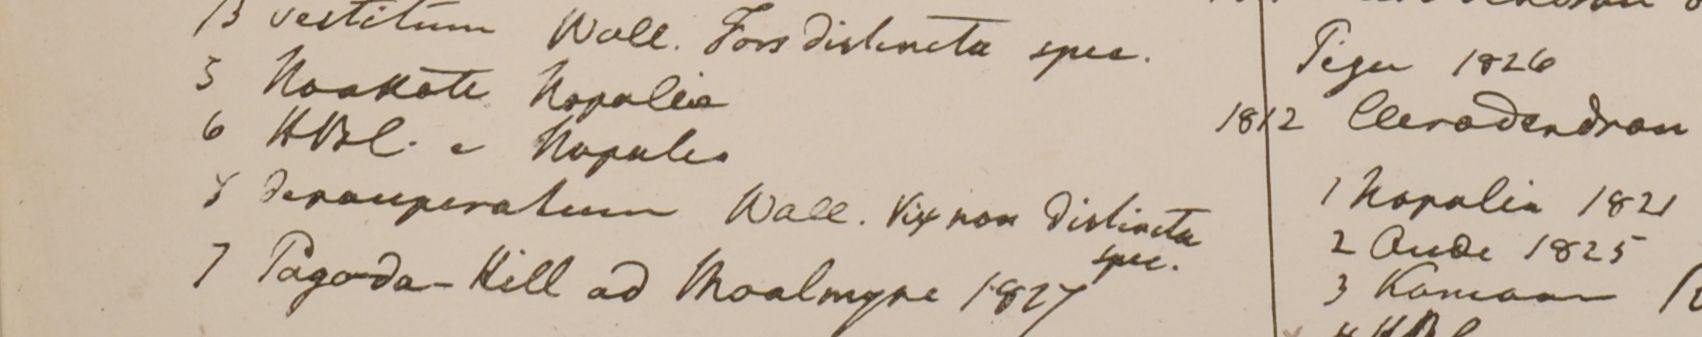 β vestitum Wall. Fors distincta spec.
5 Noakote Napalia
6 HBC. e Napalia
γ depauperatum Wall. Vix non distincta
spec.
7 Pagoda-Hill ad Moalmyne 1827
Pegu 1826
1812 Clerodendron
1 Napalia 1821
2 Oude 1825
3 Kamaon
4 HBC